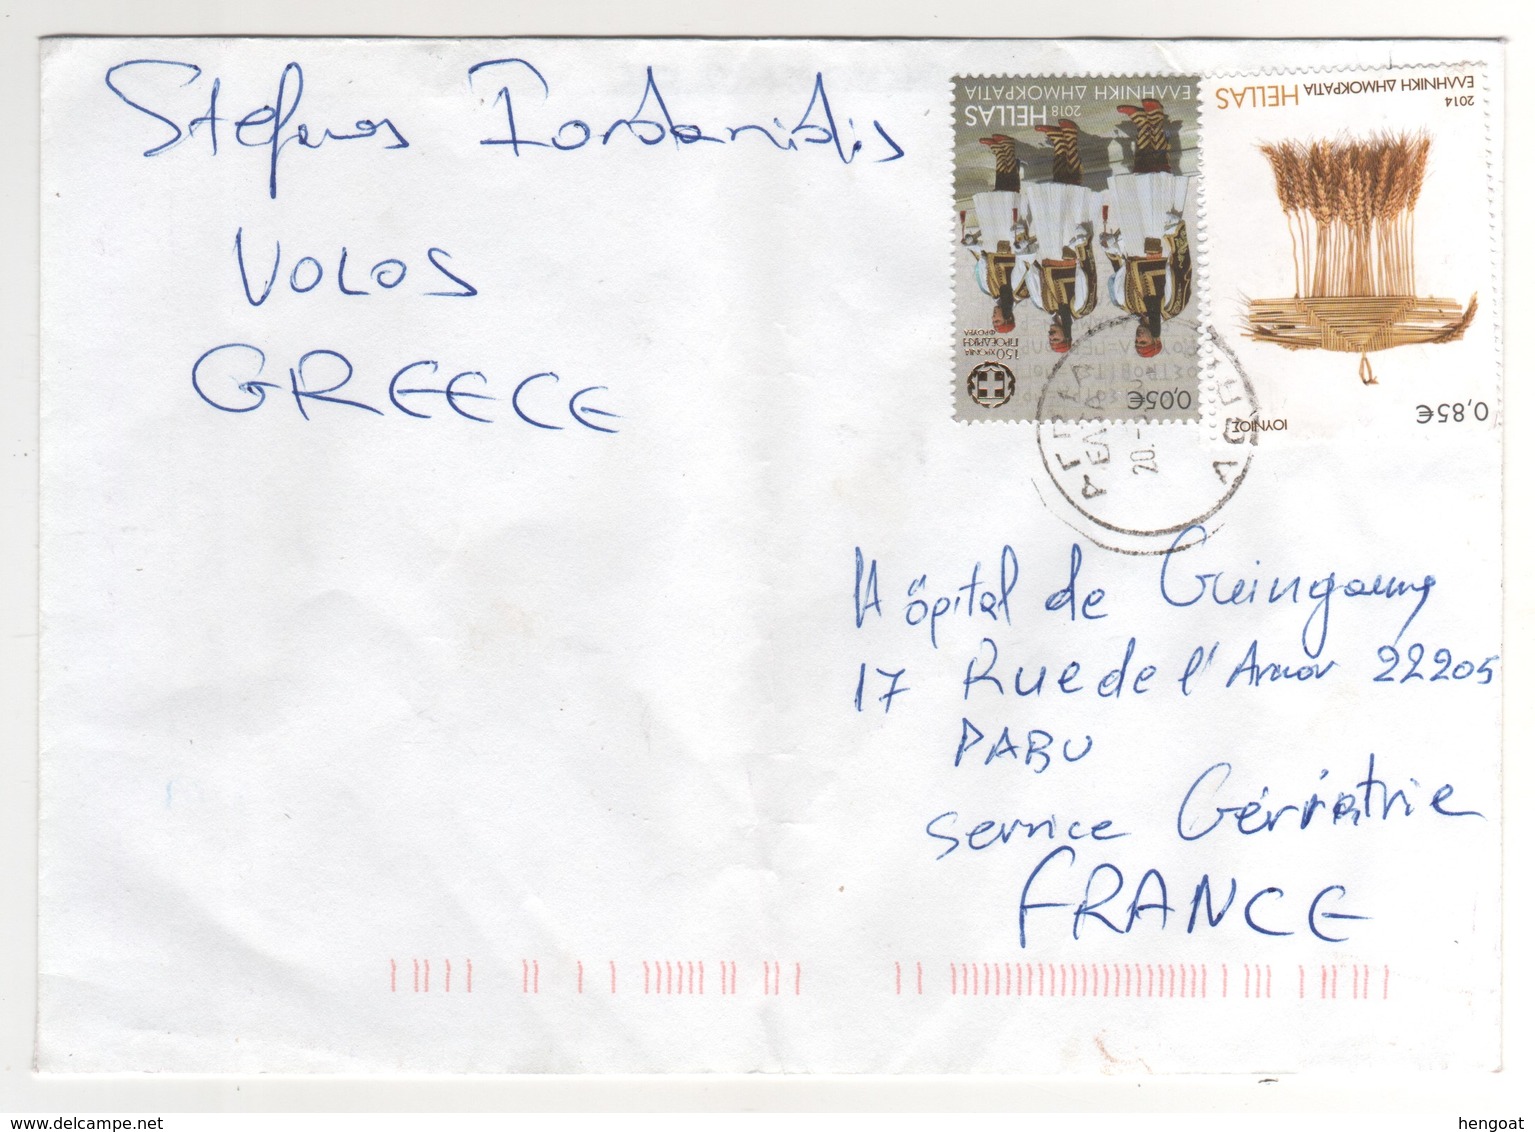 Stefanos Iordanidis
VOLOS
GREECE
ΕΛΛΗΝΙΚΗ ΔΗΜΟΚΡΑΤΙΑ
HELLAS
2018
150 ΧΡΟΝΙΑ
ΠΡΟΕΔΡΙΚΗ
ΦΡΟΥΡΑ
0,05€
2014
ΕΛΛΗΝΙΚΗ ΔΗΜΟΚΡΑΤΙΑ
HELLAS
ΙΟΥΝΙΟΣ
0,85€
20.
Hôpital de Guingamp
17 Rue de l'Armor 22205
PABU
Service Gériatrie
FRANCE
hengoat